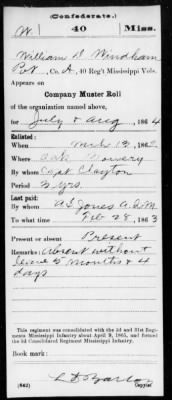 (Confederate.)
W. 40 Miss.
William D Windham
Pvt, Co. A, 40 Reg't Mississippi Vols.
Appears on
Company Muster Roll
of the organization named above,
for July & Aug, 1864
Enlisted:
When Mch 13, 186
Where Oak Bowery
By whom Capt Clayton
Period 3 yrs.
Last paid:
By whom Jones A.Q.M
To what time Feb 28, 1863
Present or absent Present
Remarks: Absent without
leave 5 months & 4
days
This regiment was consolidated with the 3d and 31st Regi-
ments Mississippi Infantry about April 9, 1865, and formed
the 3d Consolidated Regiment Mississippi Infantry.
Book mark:
(642)
Copyist.